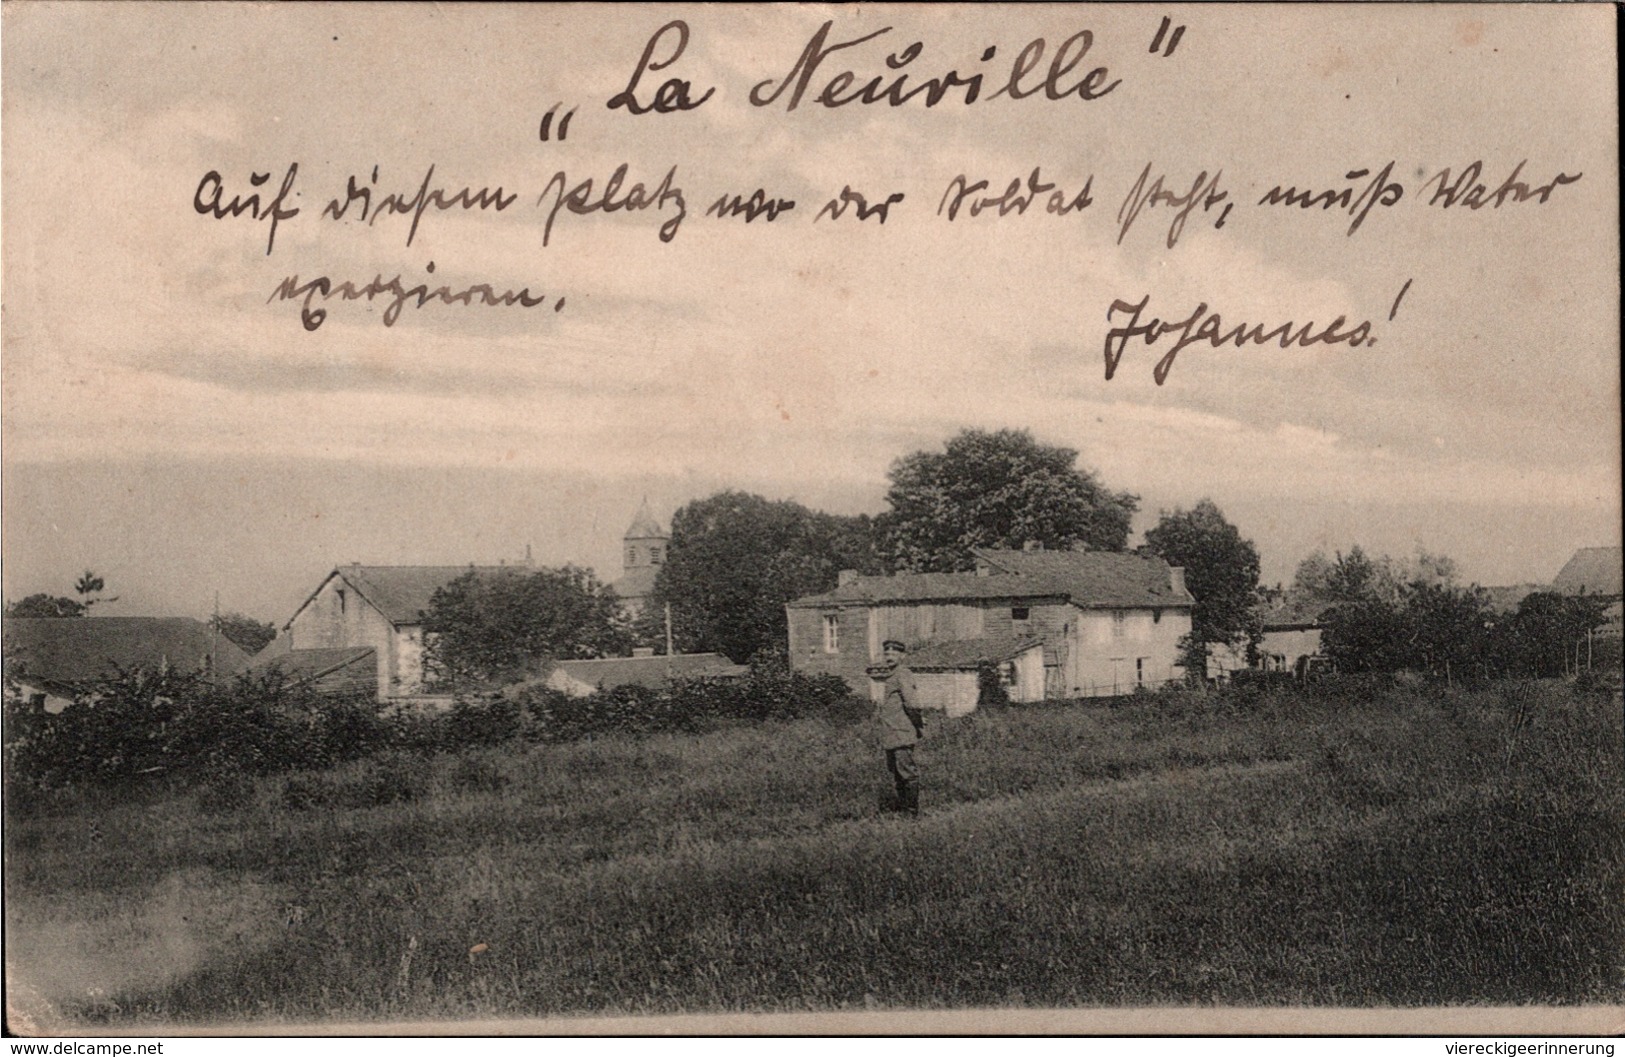 „La Neuville"
Auf diesem Platz wo der Soldat steht, muß Vater
exerzieren.
Johannes!
www.delcampe.net
viereckigeerinnerung